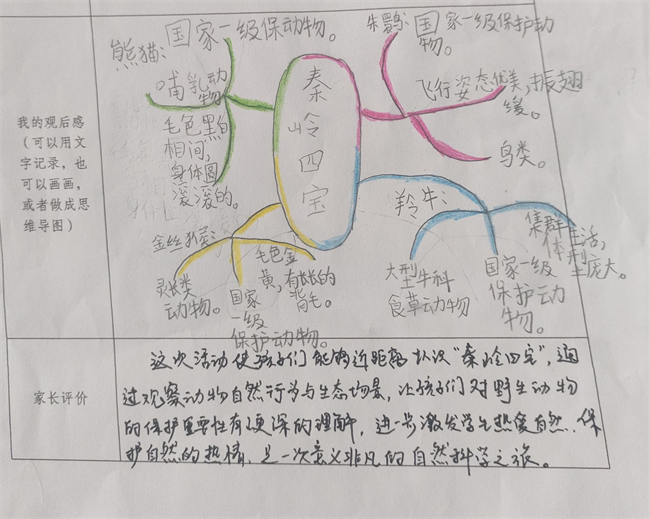 我的观后感
（可以用文
字记录，也
可以画画，
或者做成思
维导图）
秦
岭
四
宝
熊猫：
国家一级保动物。
哺乳动
物
毛色黑白
相间，
身体圆
滚滚的。
朱鹮：
国家一级保护动
物。
飞行姿态优美，振翅
缓。
鸟类。
金丝猴：
灵长类
动物。
国家
一级
保护动物。
毛色金
黄，有长长的
背毛。
羚牛：
大型牛科
食草动物
国家一级
保护动
物。
集群生活，
体型庞大。
家长评价
这次活动使孩子们能够近距离认识“秦岭四宝”，通
过观察动物自然行为与生态场景，让孩子们对野生动物
的保护重要性有更深的理解，进一步激发学生热爱自然、保
护自然的热情，是一次意义非凡的自然科学之旅。